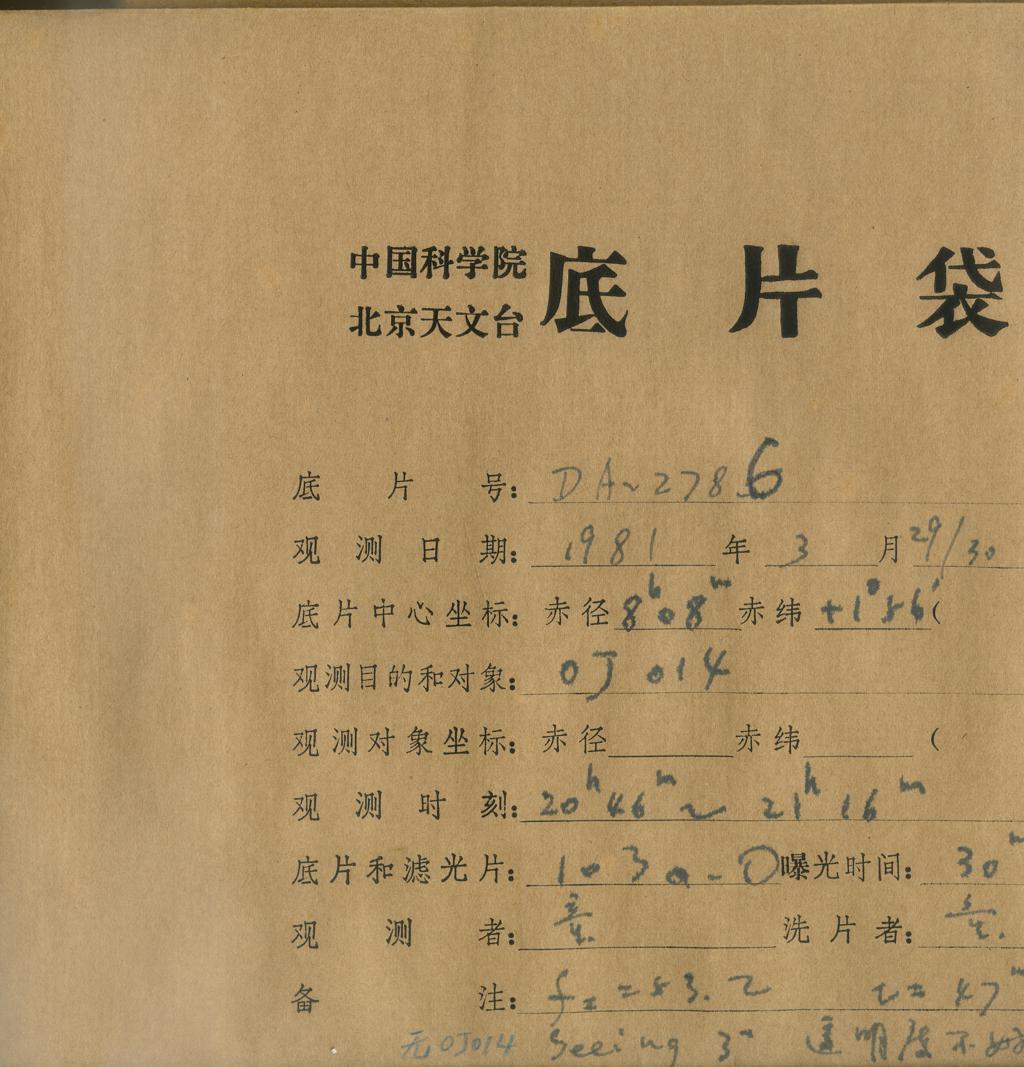 中国科学院
北京天文台
底片袋
底片号: DA~2786
观测日期: 1981年3月29/30
底片中心坐标: 赤径 8h08m 赤纬 +1°56′(
观测目的和对象: OJ 014
观测对象坐标: 赤径 赤纬 (
观测时刻: 20h46m ~ 21h16m
底片和滤光片: 103a-O 曝光时间: 30m
观测者: 洗片者:
备注: = 53.2 t= 47m
无OJ014 Seeing 3" 透明度不好